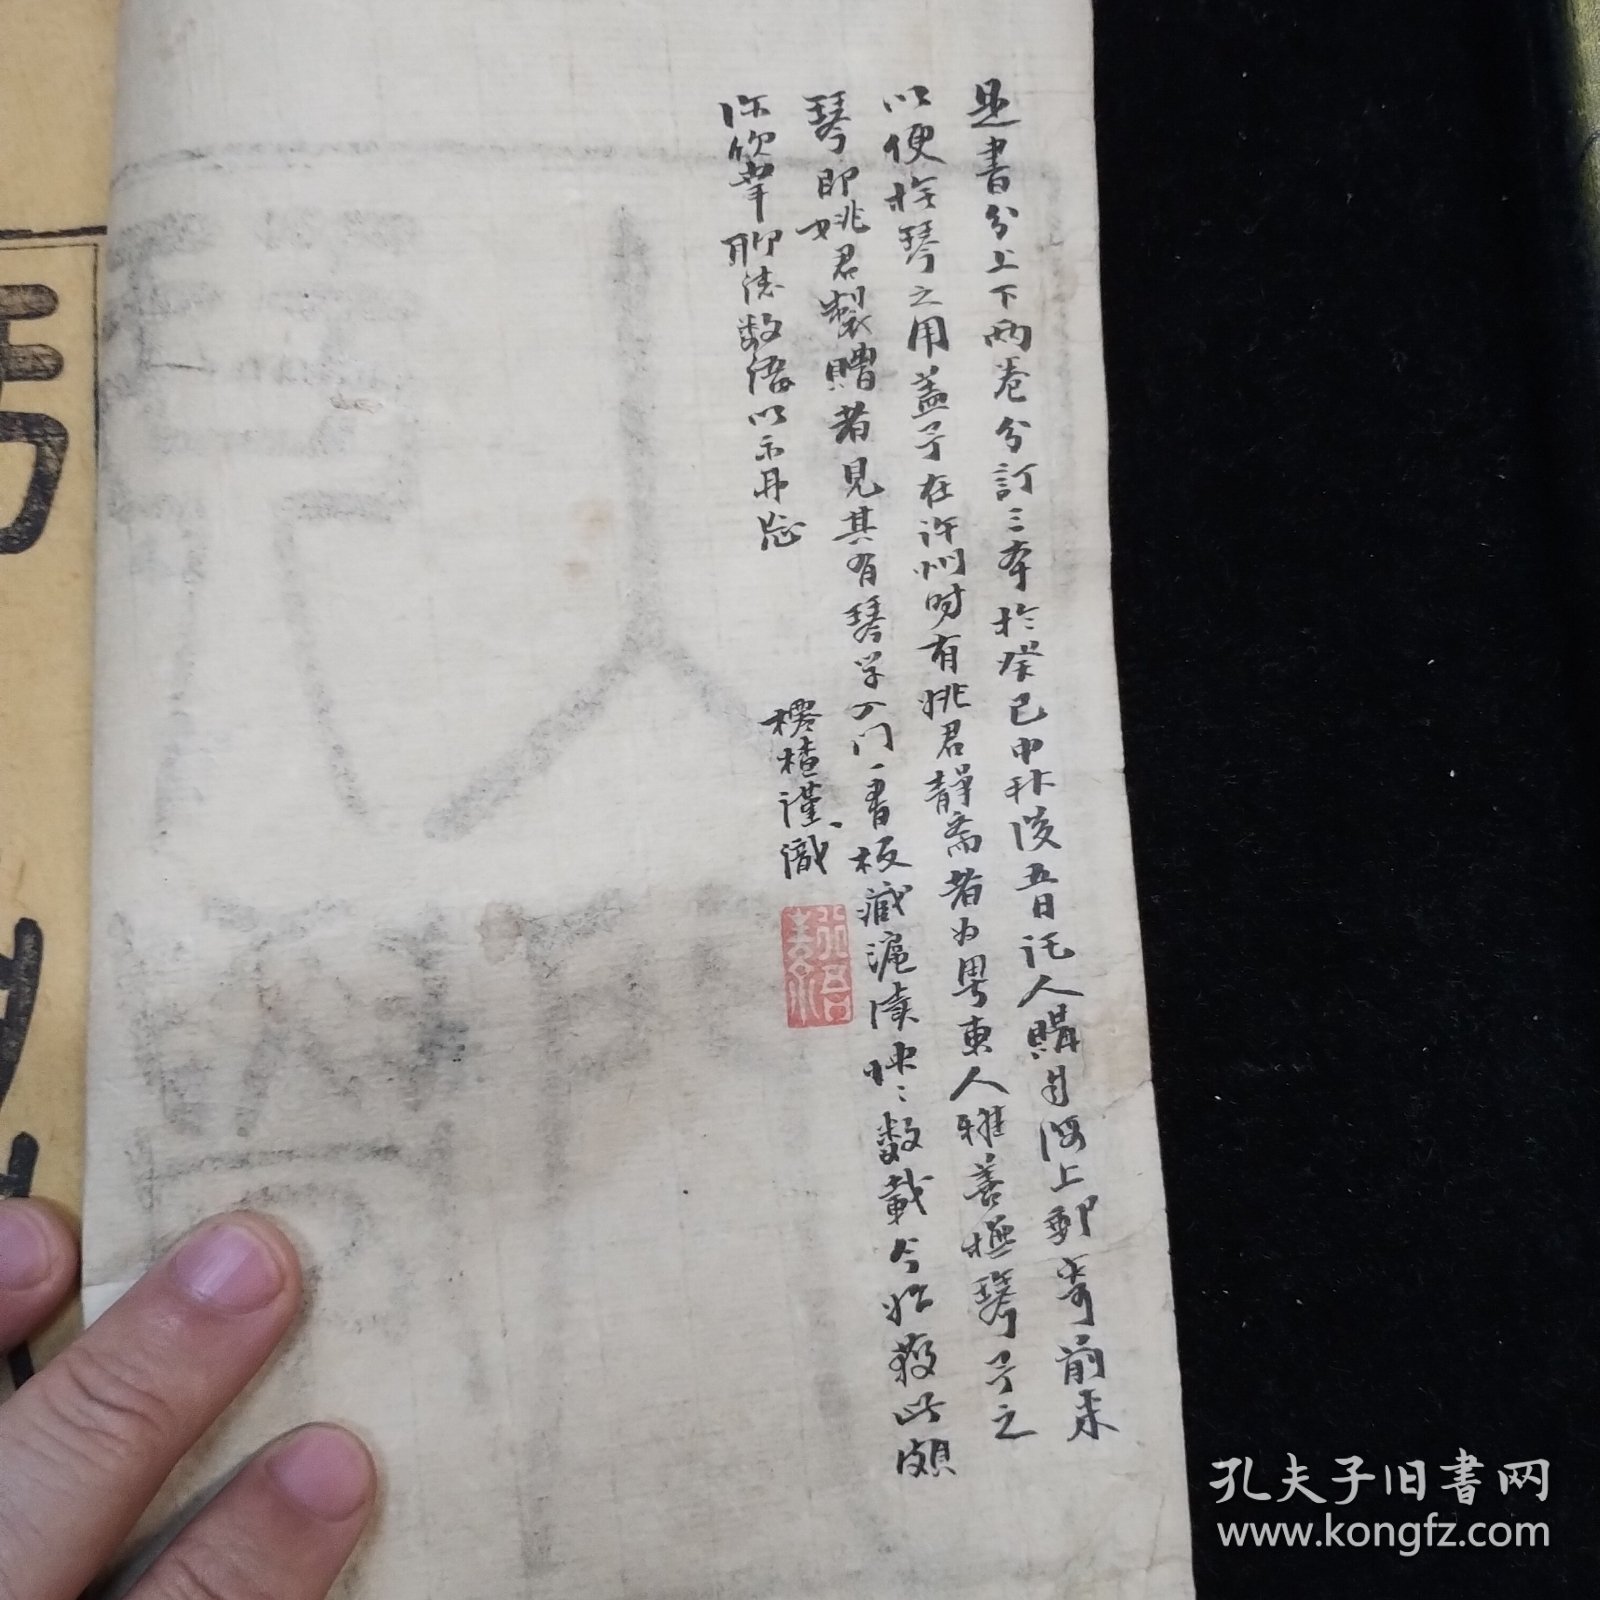 是書分上下兩卷分訂三本於癸巳中秋後五日託人購自海上郵寄前來
以便於琴之用蓋予在許州時有姚君靜齋者為粵東人雅善撫琴予之
琴即姚君製贈者見其有琴学入门一書板藏滬瀆怏〻數載今始獲此頗
深欣幸聊誌數語以示毋忘
謹識
孔夫子旧书网
www.kongfz.com